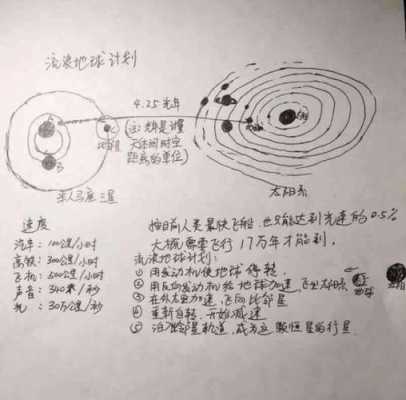 流浪地球计划
4.25光年
(注:光年是计量
天体间时空
距离的单位)
A
B
C
地球
半人马座 三星
太阳系
速度
汽车:100公里/小时
高铁:300公里/小时
飞机:800公里/小时
声音:340米/秒
光:30万公里/秒
按目前人类最快飞船,也只能达到光速的0.5%
大概需要飞行17万年才能到。
流浪地球计划:
① 用发动机使地球停转。
② 用反向发动机给地球加速,飞出太阳系
③ 在外太空加速,飞向比邻星
④ 重新自转,开始减速
⑤ 泊入比邻星轨道,成为这颗恒星的行星。
地球